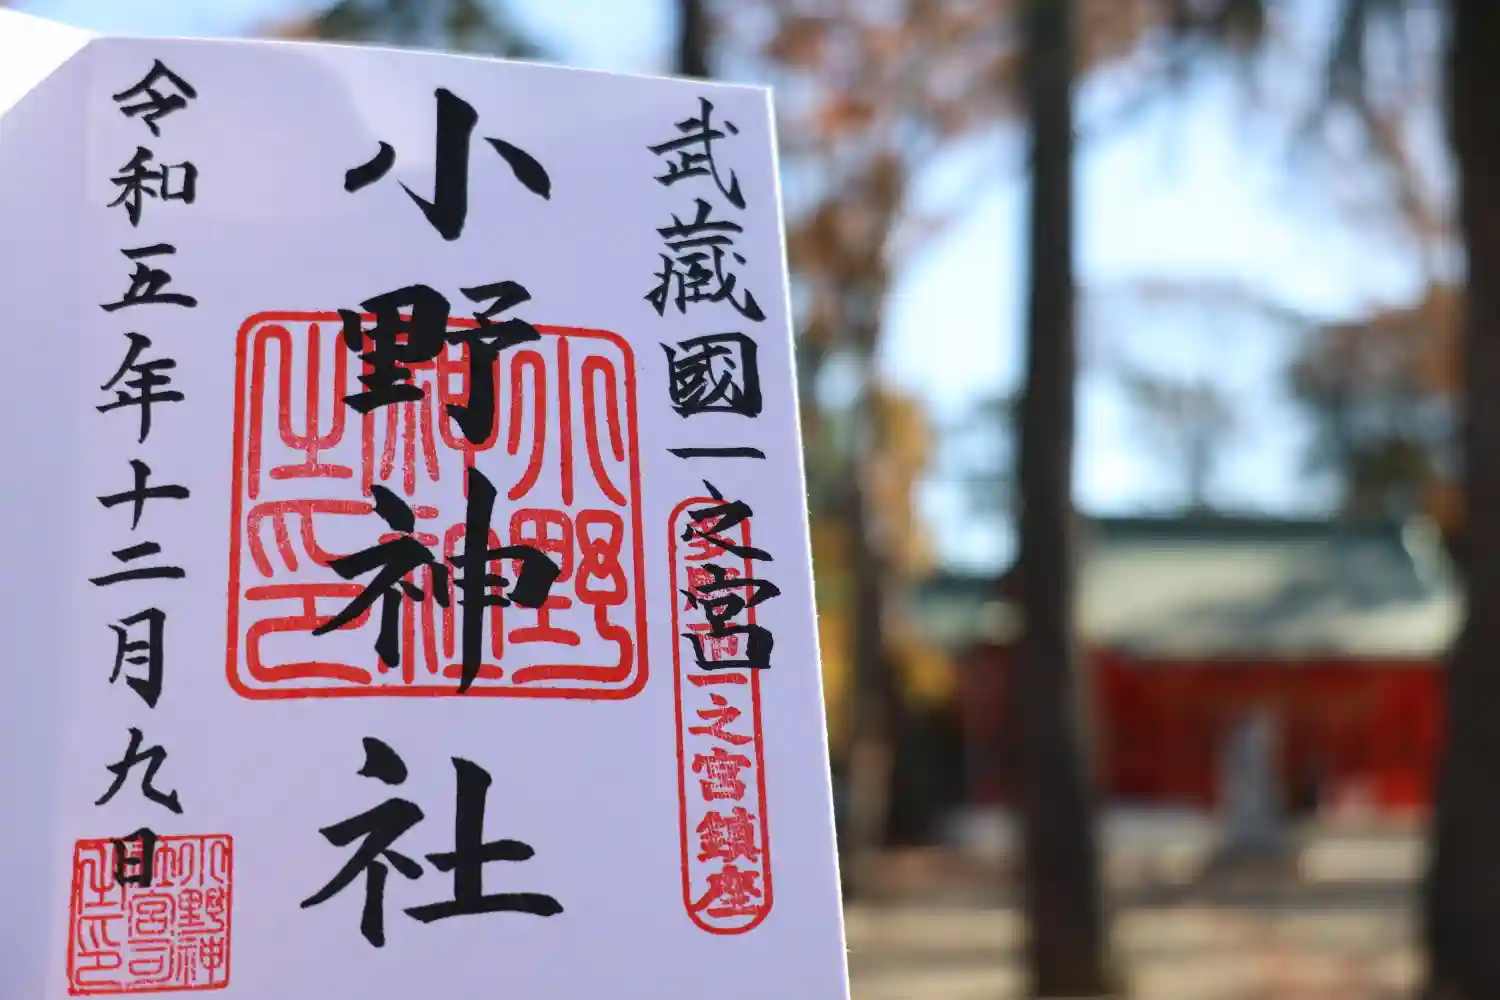 武藏國一之宮
一之宮鎮座
小野神社
小野神社之印
令和五年十二月九日
小野神社宮司之印